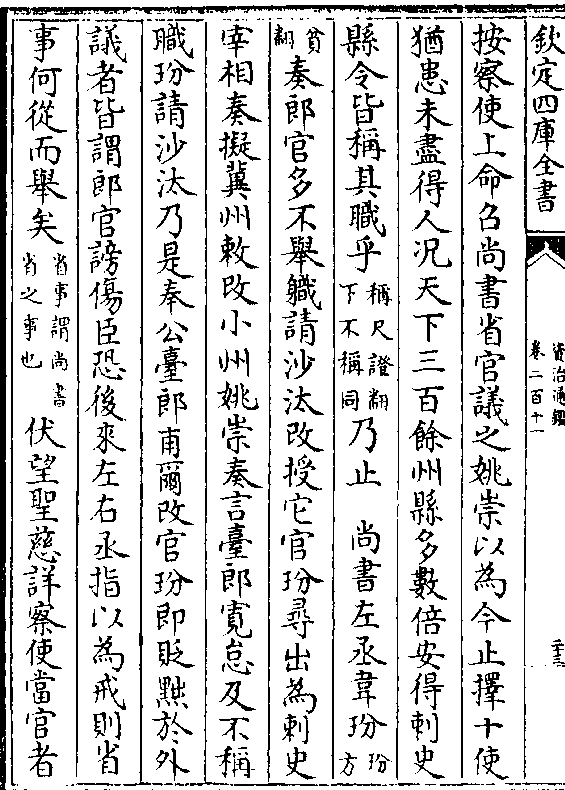 欽定四庫全書
資治通鑑
卷二百十一
二十三
按察使上命召尚書省官議之姚崇以為今止擇十使
猶患未盡得人況天下三百餘州縣多數倍安得刺史
縣令皆稱其職乎稱尺證翻下不稱同乃止 尚書左丞韋玢玢方
貧翻奏郎官多不舉職請沙汰改授它官玢尋出為刺史
宰相奏擬冀州敕改小州姚崇奏言臺郎寬怠及不稱
職玢請沙汰乃是奉公臺郎甫爾改官玢即貶黜於外
議者皆謂郎官謗傷臣恐後來左右丞指以為戒則省
事何從而舉矣省事謂尚書省之事也伏望聖慈詳察使當官者